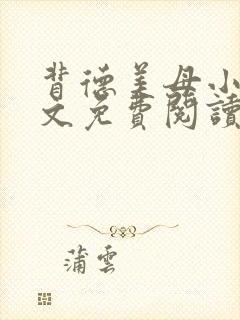 背德美母小
文免費閱讀
蒲雲